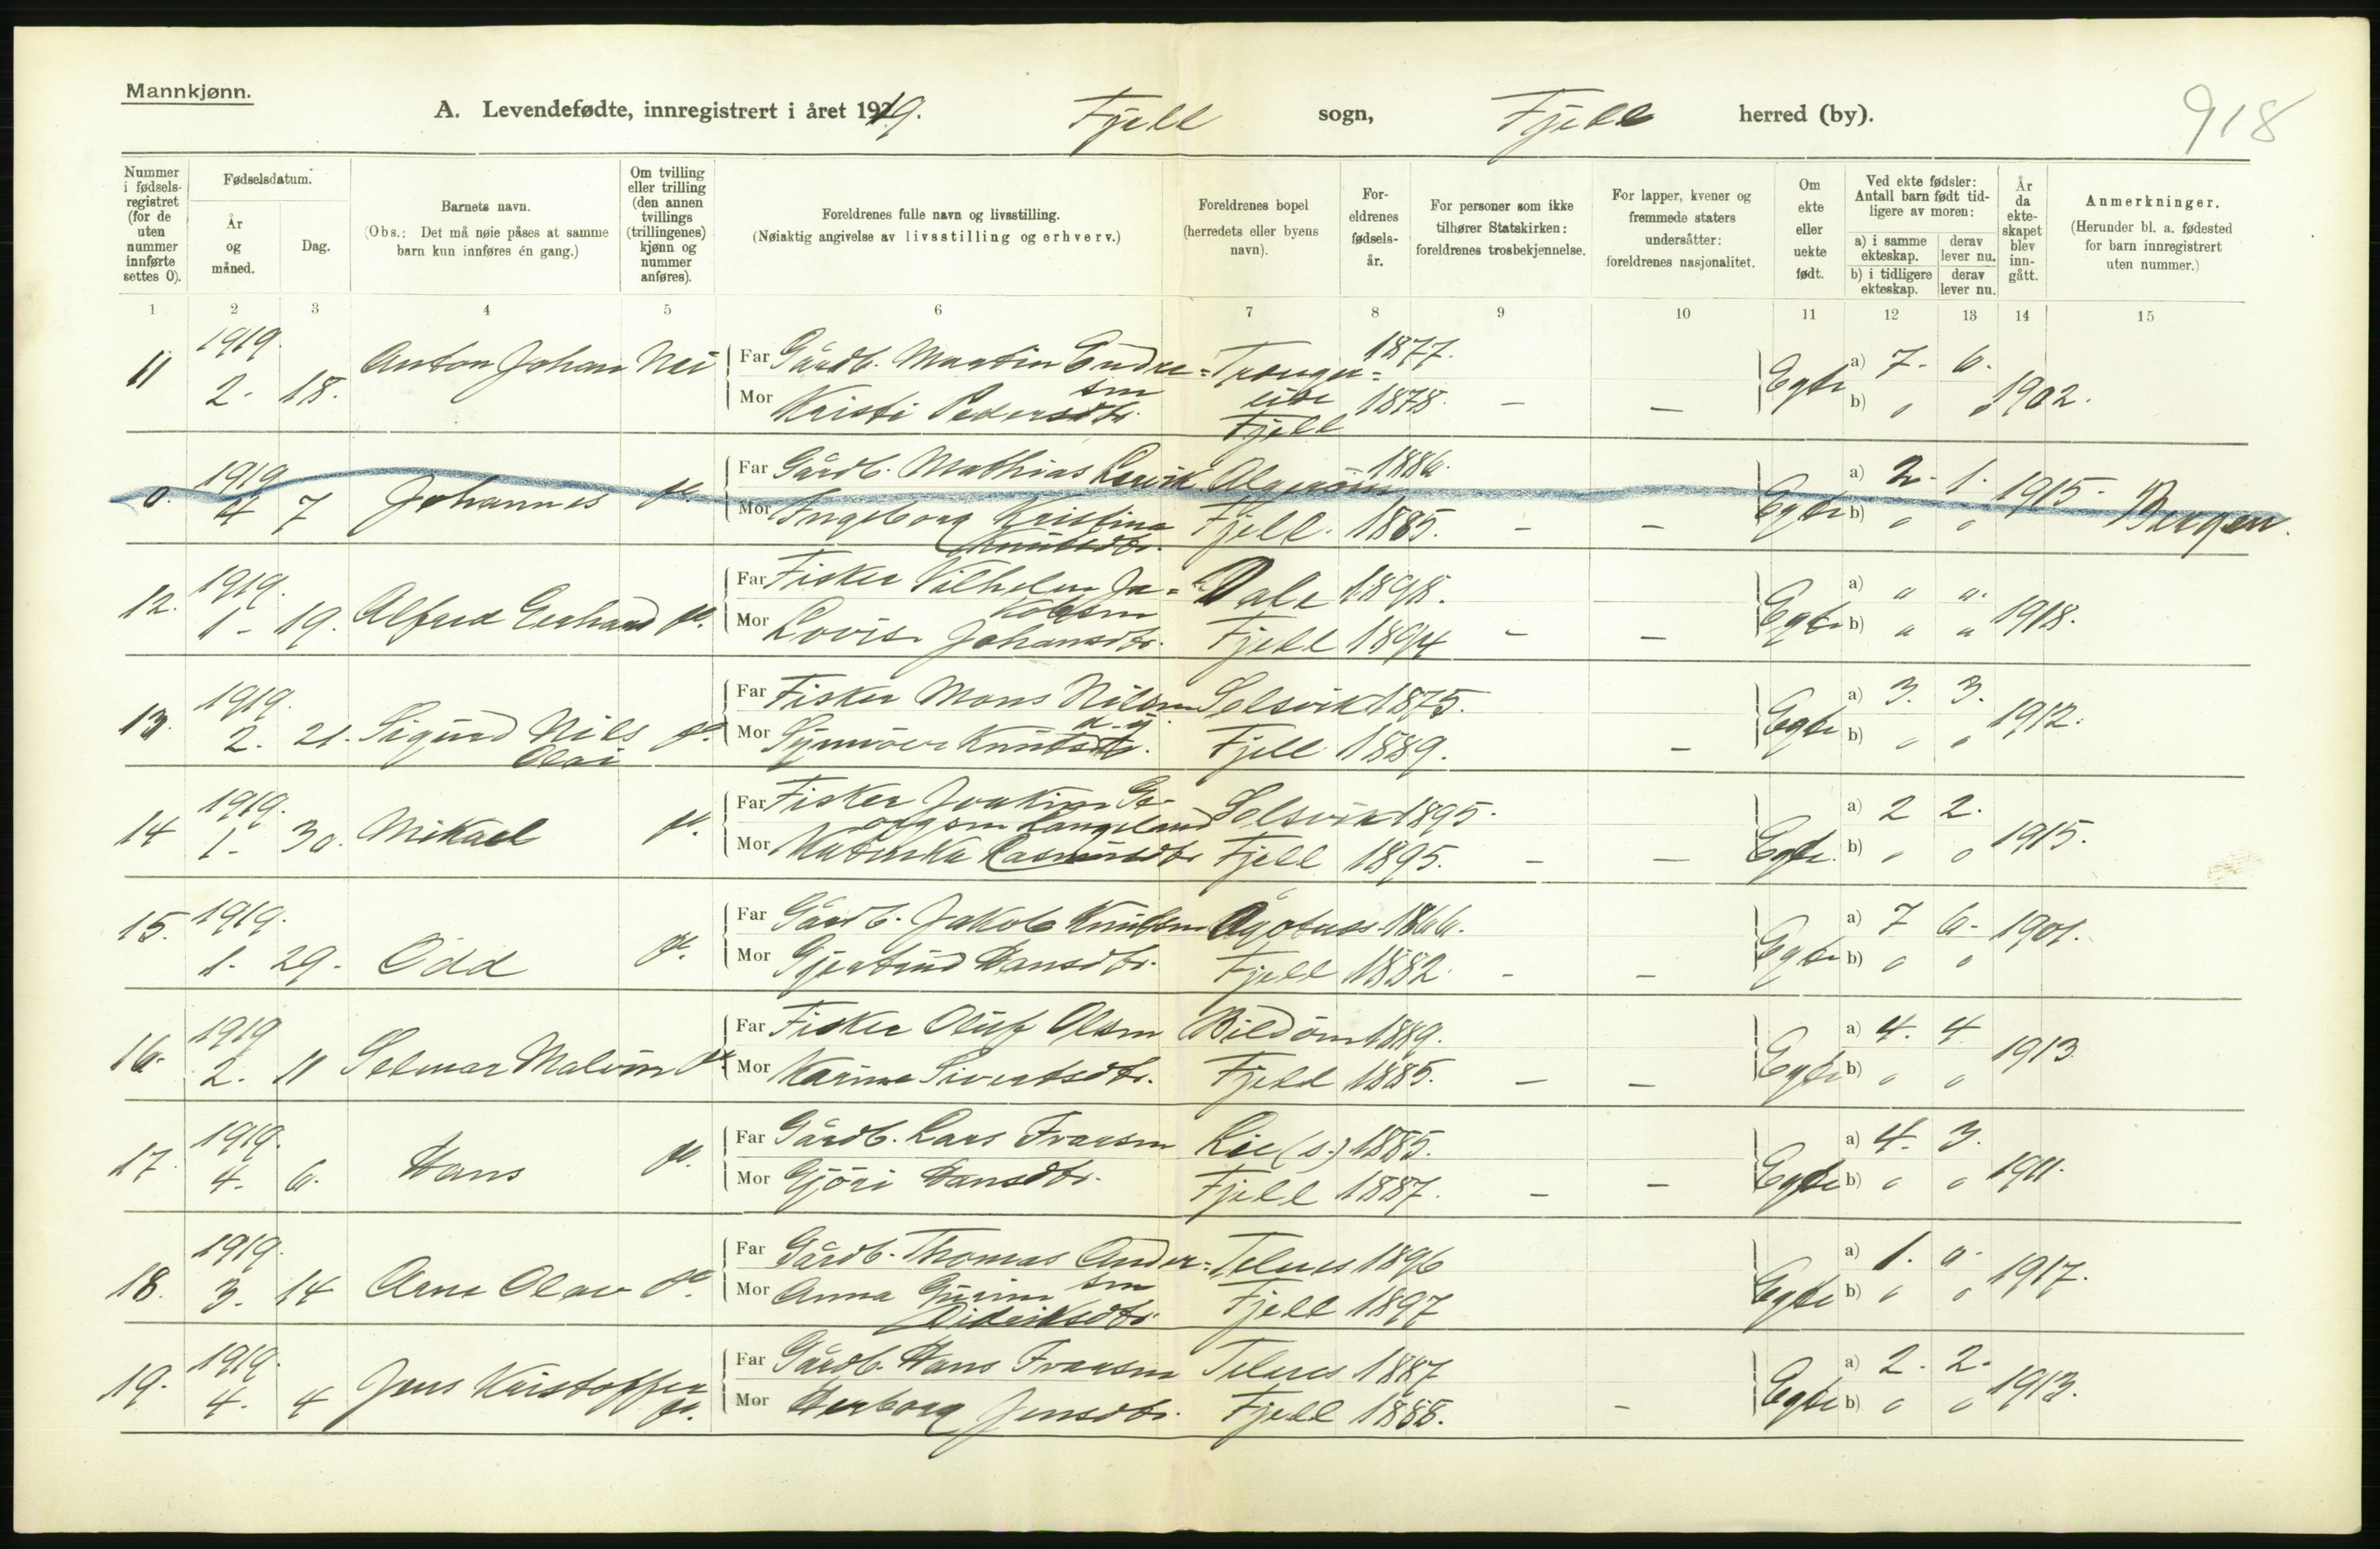 Mannkjønn.
A. Levendefødte, innregistrert i året 1919. Fjell sogn, Fjell herred (by).
918
Nummer i fødselsregistret (for de uten nummer innførte settes 0).
Fødselsdatum.
År og måned.
Dag.
Barnets navn.
(Obs.: Det må nøie påses at samme barn kun innføres én gang.)
Om tvilling eller trilling (den annen tvillings (trillingenes) kjønn og nummer anføres).
Foreldrenes fulle navn og livsstilling.
(Nøiaktig angivelse av livsstilling og erhverv.)
Foreldrenes bopel (herredets eller byens navn).
Foreldrenes fødselsår.
For personer som ikke tilhører Statskirken: foreldrenes trosbekjennelse.
For lapper, kvener og fremmede staters undersåtter: foreldrenes nasjonalitet.
Om ekte eller uekte født.
Ved ekte fødsler: Antall barn født tidligere av moren:
a) i samme ekteskap. derav lever nu.
b) i tidligere ekteskap. derav lever nu.
År da ekteskapet blev inngått.
Anmerkninger.
(Herunder bl. a. fødested for barn innregistrert uten nummer.)
1 2 3 4 5 6 7 8 9 10 11 12 13 14 15
11 1919. 2. 18. Anton Johan Nei Far Gårdb. Martin Endresen 1877. Egte a) 7. 6.
Mor Kristi Pedersdtr. Fjell 1878. – – b) " " 1902.
0. 1919 4 7 Johannes Far Gårdb. Mathias Lervik Algerøin 1886. Egte a) 2. 1. 1915. Bergen.
Mor Ingeborg Kristina Knutsdtr. Fjell. 1885. – – b) " "
12. 1919. 1 - 19. Alfred Gerhard Far Fisker Vilhelm Jakobsen Dale 1898. Egte a) " "
Mor Lovise Johansdtr. Fjell 1894 – – b) " " 1918.
13. 1919. 2. 21. Sigurd Nils Olai Far Fisker Mons Nilsen Solsvik 1875. Egte a) 3. 3.
Mor Synnöve Knutsdtr. Fjell 1889. – b) " " 1912.
14 1919. 1 - 30. Mikael Far Fisker Joakim Langeland Solsvik 1895. Egte a) 2 2.
Mor Rasmusdtr Fjell 1895. – – b) " " 1915.
15. 1919. 1 - 29. Odd Far Gårdb. Jakob Knutsen Ågotnes 1866. Egte a) 7 6. 1901.
Mor Gjertrud Hansdtr. Fjell 1882. – – b) " "
16. 1919 2. 11 Selmar Malvin Far Fisker Oluf Olsen Bildöin 1889. Egte a) 4. 4
Mor Karina Sivertsdtr. Fjell 1885. – – b) " " 1913
17. 1919. 4. 6. Hans Far Gårdb. Lars Fransen Lie (s.) 1885. Egte a) 4. 3.
Mor Gjöri Hansdtr. Fjell 1887. – – b) " " 1911.
18. 1919. 3. 14 Arne Olav Far Gårdb. Thomas Andersen Telnes 1896 Egte a) 1. "
Mor Anna Gurine Didriksdtr Fjell 1897 b) " " 1917.
19. 1919. 4. 4 Jens Kristoffer Far Gårdb. Hans Fransen Telnes 1887 Egte a) 2. 2.
Mor Herborg Jensdtr. Fjell 1888. – b) " " 1913.